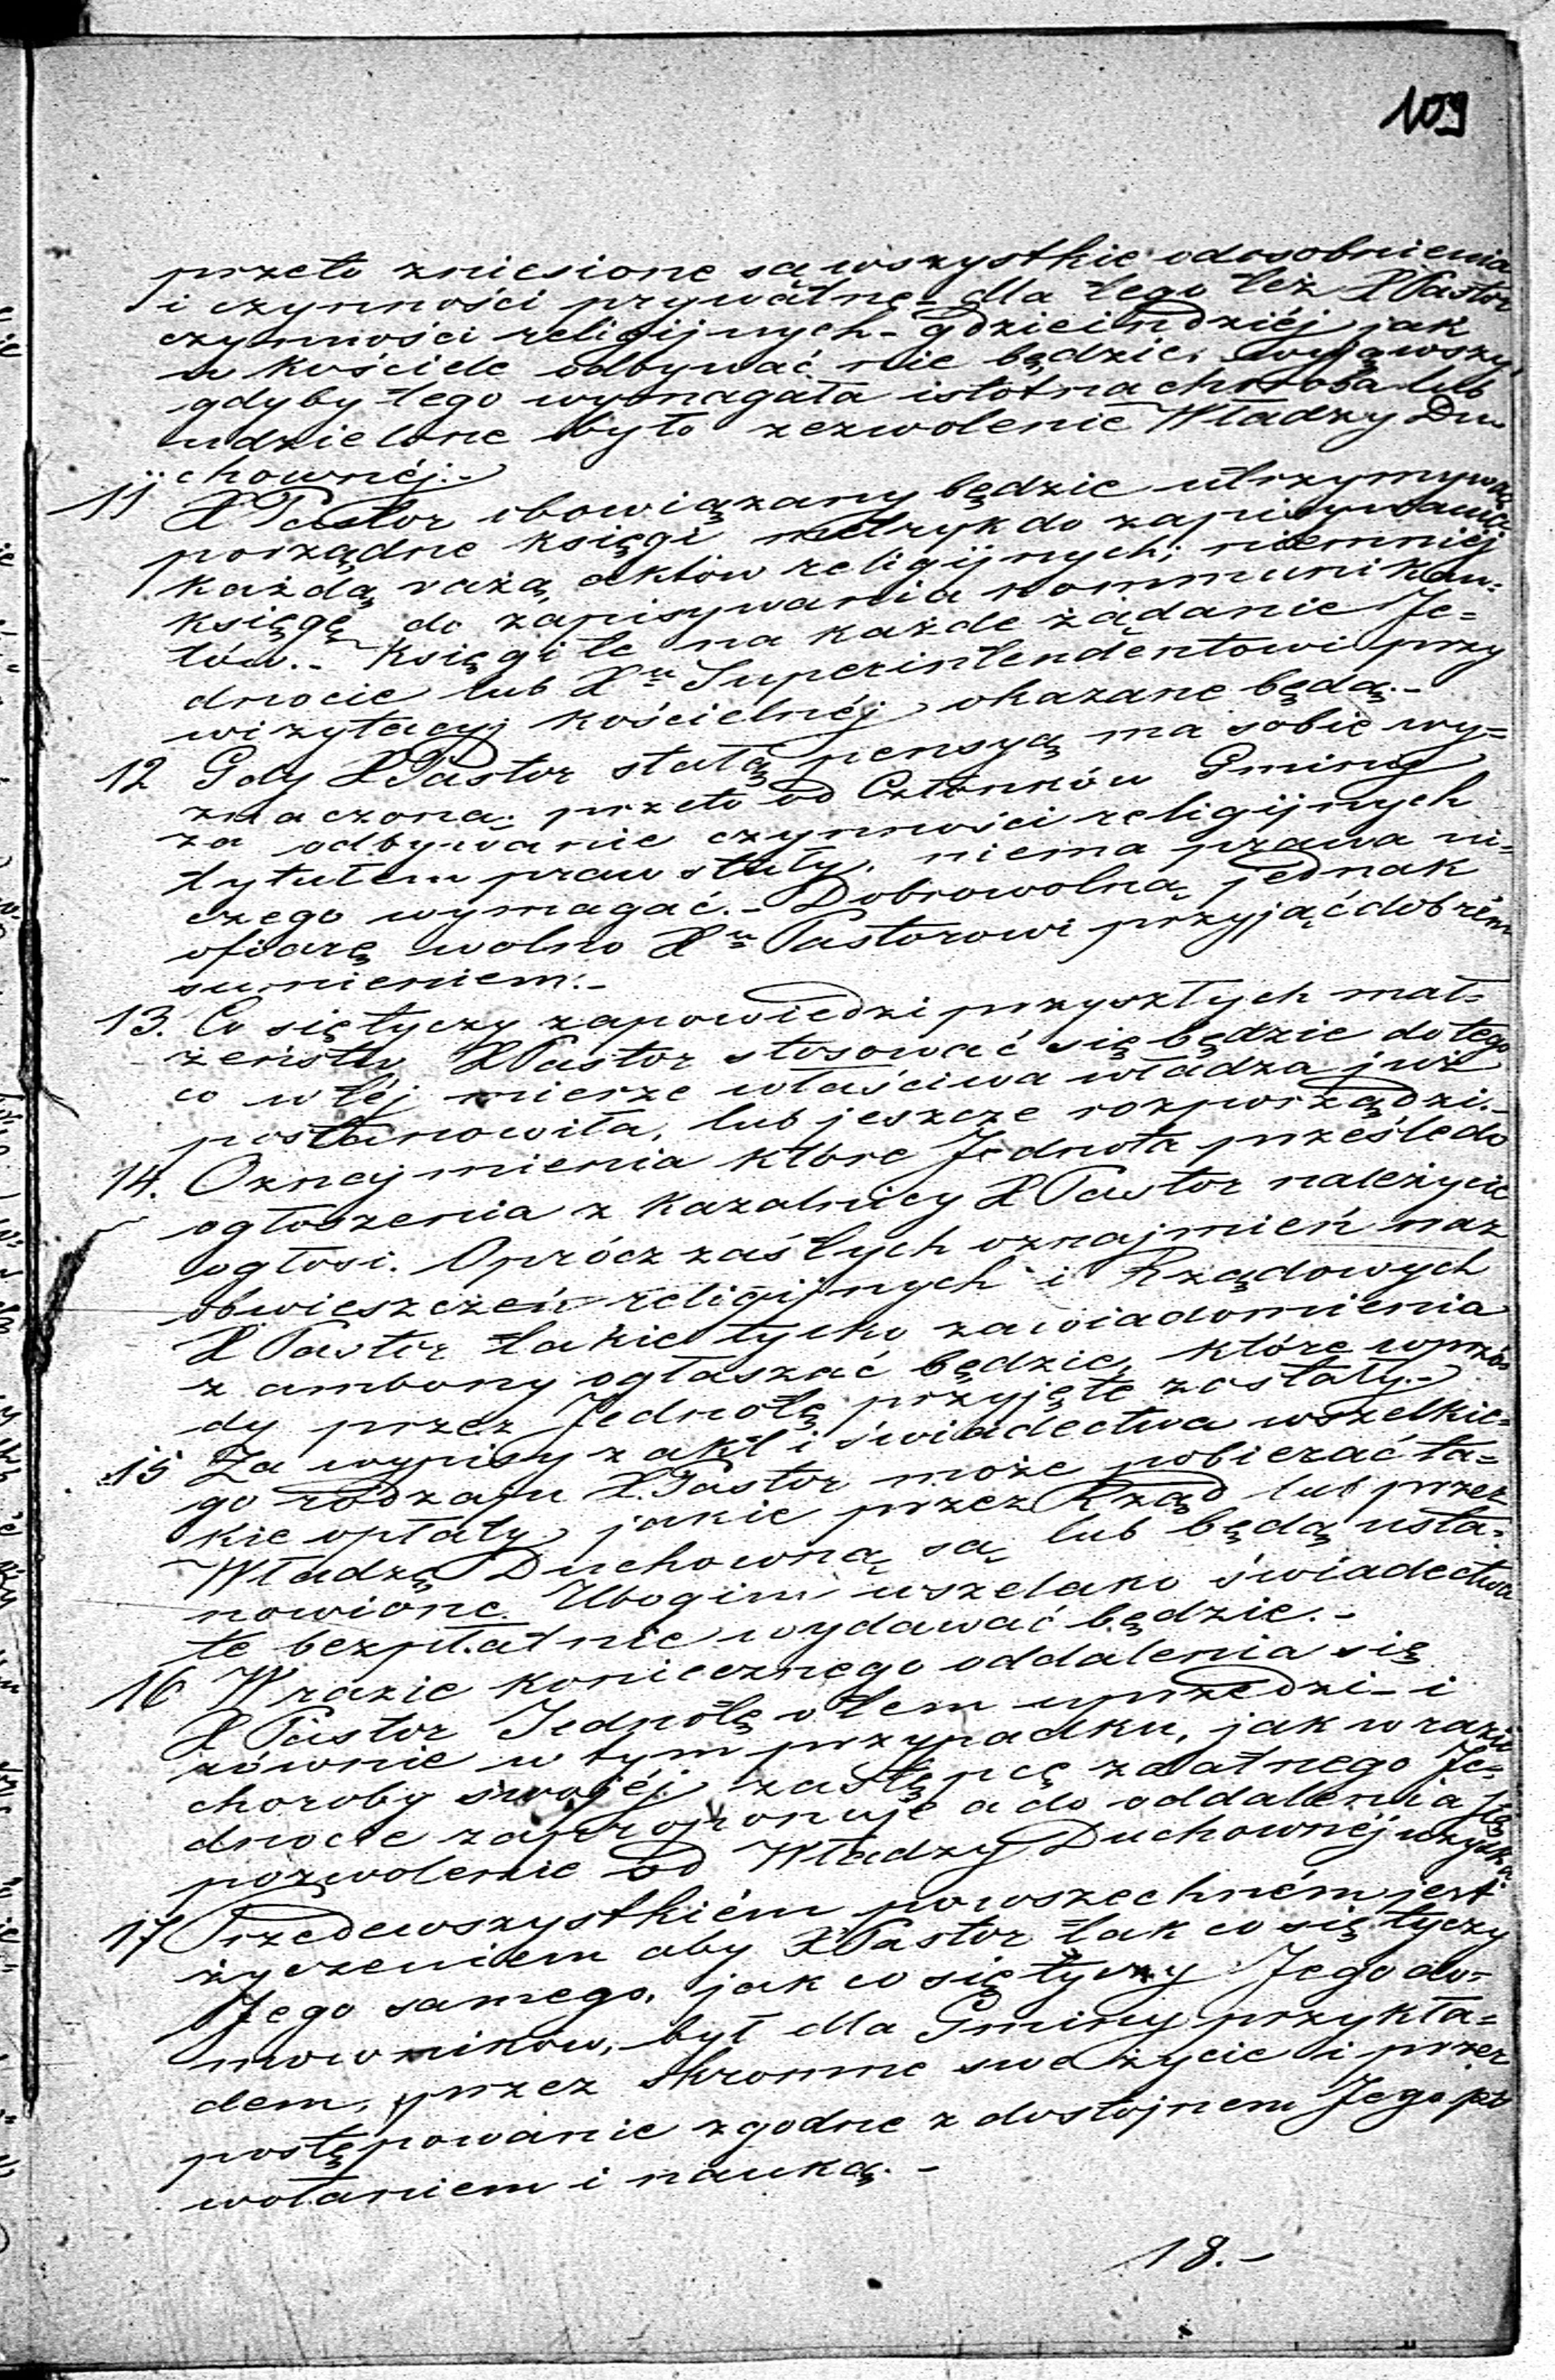 109
przeto zniesione są wszystkie odosobnienia
i czynności prywatne – dla tego też X Pastor
czynności religijnych – gdzieindziéj jak
w kościele odbywać nie będzie, wyjąwszy
gdyby tego wymagała istotna choroba lub
udzielone było zezwolenie Władzy Du-
chownéj.-
11 X Pastor obowiązany będzie utrzymywać
porządne księgi metryk do zapisywania
każdą rażą aktów religijnych; niemniéj
księgę do zapisywania kommunikan=
tów.- Księgi te na każde żądanie Je=
dnocie lub Xu Superintendentowi przy
wizytacyj kościelnéj okazane będą.-
12 Gdy X Pastor stałą pensyą ma sobie wy=
znaczoną, przeto od Członków Gminy
za odbywanie czynności religijnych
tytułem praw stuły, niema prawa ni=
czego wymagać.- Dobrowolną jednak
ofiarę wolno Xu Pastorowi przyjąć dobrém
sumieniem.-
13. Co się tyczy zapowiedzi przyszłych mał=
żeństw X Pastor stosować się będzie do tego
co w téj mierze właściwa władza już
postanowiła, lub jeszcze rozporządzi.-
14. Oznajmienia które Jednota prześle do
ogłoszenia z Kazalnicy X Pastor należycie
ogłosi. Oprócz zaś tych oznajmień oraz
obwieszczeń religijnych i Rządowych
X Pastor takie tylko zawiadomienia
z ambony ogłaszać będzie, które wprzó=
dy przez Jednotę przyjęte zostały.-
15 Za wypisy z akt i świadectwa wszelkie=
go rodzaju X. Pastor może pobierać ta=
kie opłaty, jakie przez Rząd lub przez
Władzę Duchowną są lub będą usta=
nowione. Ubogim wszelako świadectwa
te bezpłatnie wydawać będzie.-
16 W razie koniecznego oddalenia się
X Pastor Jednotę o tem uprzedzi – i
równie w tym przypadku, jak w razie
choroby swojéj zastępcę zdatnego Je=
dnocie zaproponuje a do oddalenia się
pozwolenie od Władzy Duchownéj uzyska.
17 Przedewszystkiém powszechném jest
życzeniem aby X Pastor tak co się tyczy
Jego samego, jak co się tyczy Jego do=
mowników, był dla Gminy przykła=
dem, przez skromne swe życie i przez
postępowanie zgodne z dostojnem Jego po
wołaniem i nauką.-
18.-